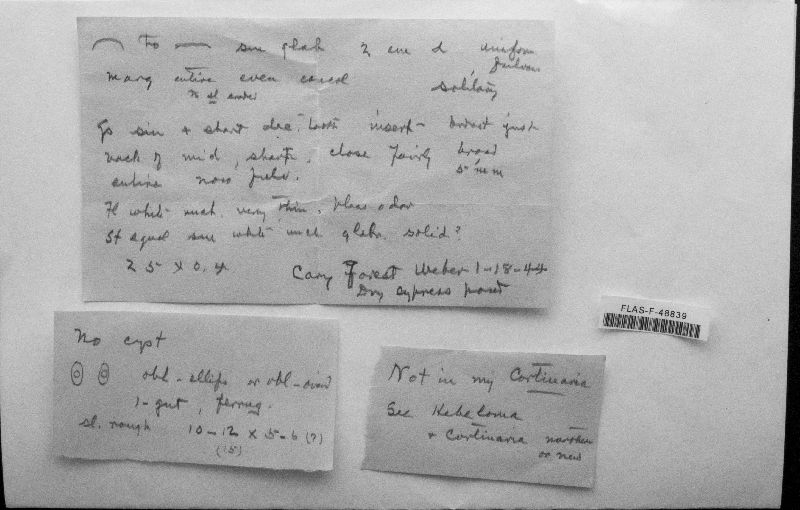 to sm glab 2 cm d uniform
fulvous
marg entire even
n sl striate
solitary
Gs sin + short dec. tooth insert -
back of mid, sharp, close fairly broad
5 mm
entire now fulv.
Fl white unch. very thin. pleas odor
St equal sm white unch glabr. solid?
2.5 x 0.4
Cary Forest Weber 1-18-44
Dry cypress pond
FLAS-F-48839
No cyst
obl - ellips or obl - ovoid
1 - gut, ferrug.
sl. rough 10-12 x 5-6 (?)
(15)
Not in my Cortinaria
See Hebeloma
+ Cortinaria
or new